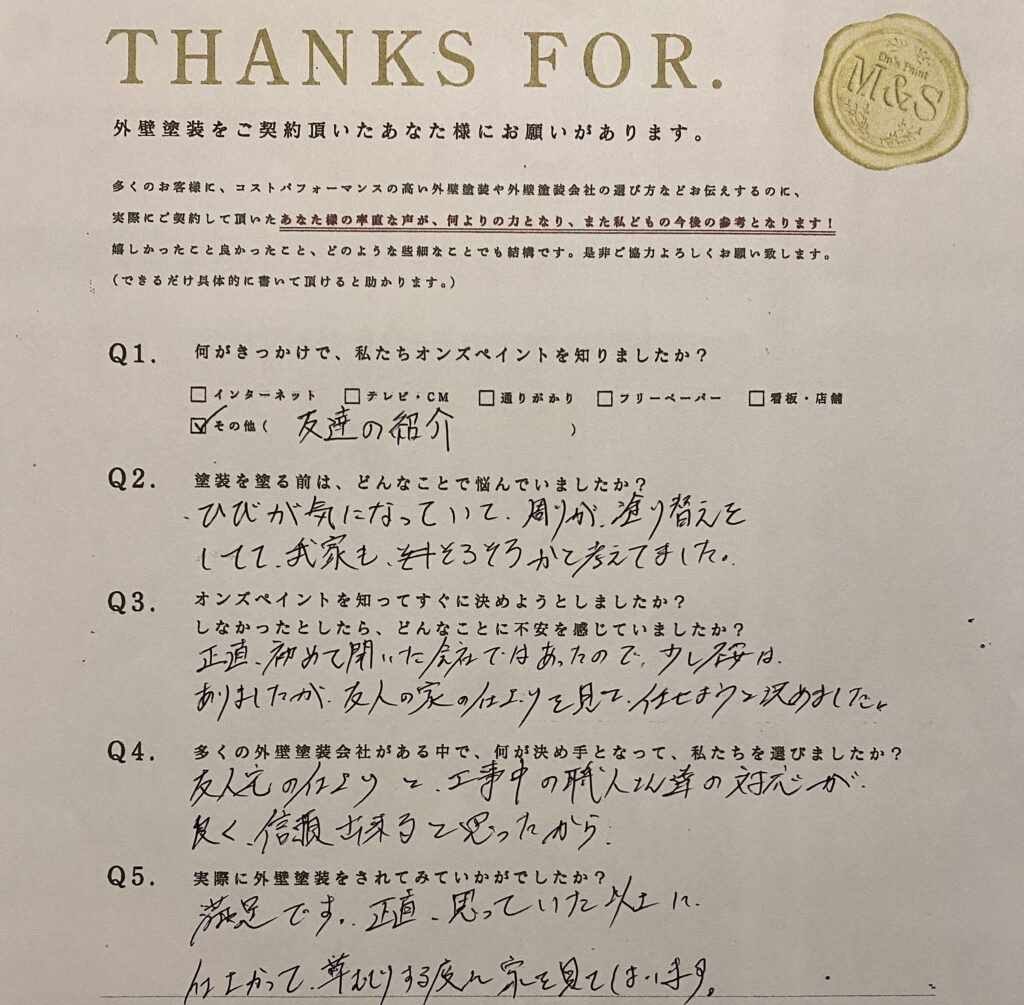 THANKS FOR.
On's Paint
M&S
外壁塗装をご契約頂いたあなた様にお願いがあります。
多くのお客様に、コストパフォーマンスの高い外壁塗装や外壁塗装会社の選び方などお伝えするのに、
実際にご契約して頂いたあなた様の率直な声が、何よりの力となり、また私どもの今後の参考となります！
嬉しかったこと良かったこと、どのような些細なことでも結構です。是非ご協力よろしくお願い致します。
（できるだけ具体的に書いて頂けると助かります。）
Q1. 何がきっかけで、私たちオンズペイントを知りましたか？
□インターネット □テレビ・CM □通りがかり □フリーペーパー □看板・店舗
☑その他（ 友達の紹介 ）
Q2. 塗装を塗る前は、どんなことで悩んでいましたか？
ひびが気になっていて、周りが、塗り替えを
してて、我家も、そろそろかと考えてました。
Q3. オンズペイントを知ってすぐに決めようとしましたか？
しなかったとしたら、どんなことに不安を感じていましたか？
正直、初めて聞いた会社ではあったので、少し不安は、
ありましたが、友人の家の仕上りを見て、任せようと決めました。
Q4. 多くの外壁塗装会社がある中で、何が決め手となって、私たちを選びましたか？
友人宅の仕上りと、工事中の職人さん達の対応が、
良く、信頼出来ると思ったから、
Q5. 実際に外壁塗装をされてみていかがでしたか？
満足です。正直、思っていた以上に、
仕上がって、草むしりする度に家を見てしまいます。